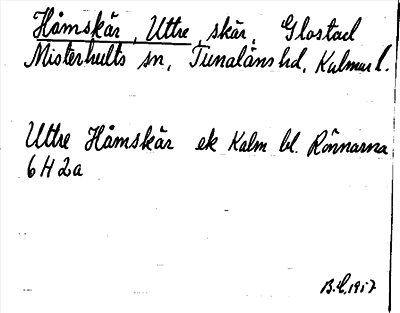 Håmskär, Uttre, skär, Glostad
Misterhults sn, Tunaläns hd, Kalmar l.
Uttre Håmskär ek Kalm bl. Rönnarna
6H2a
1957